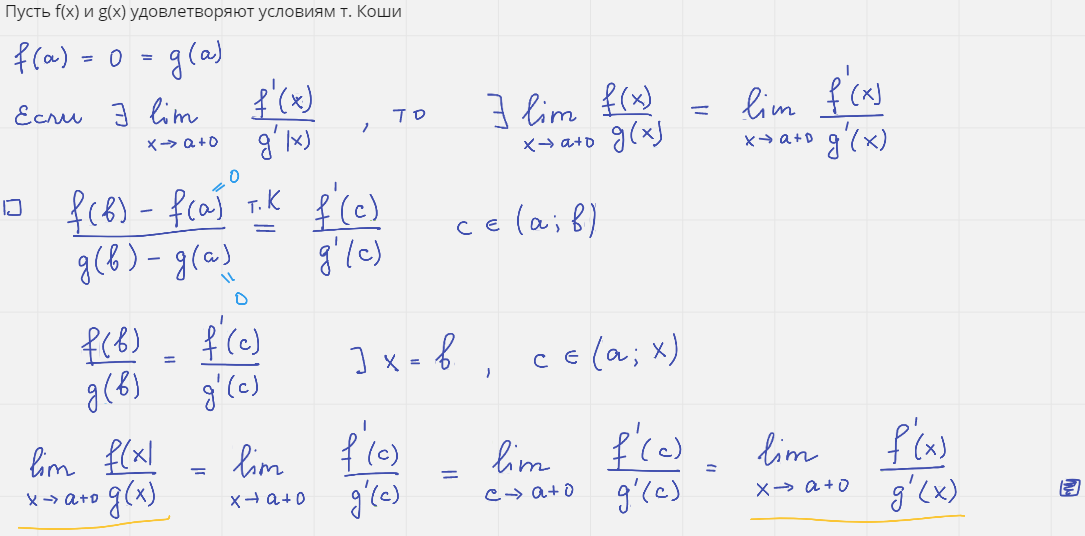 Пусть f(x) и g(x) удовлетворяют условиям т. Коши
f(a) = 0 = g(a)
Если ∃ lim x→a+0 f'(x)/g'(x) , то ∃ lim x→a+0 f(x)/g(x) = lim x→a+0 f'(x)/g'(x)
□ (f(в) − f(a) = 0)/(g(в) − g(a) = 0) =(т.К) f'(c)/g'(c) c ∈ (a; в)
f(в)/g(в) = f'(c)/g'(c) ] x = в , c ∈ (a; x)
lim x→a+0 f(x)/g(x) = lim x→a+0 f'(c)/g'(c) = lim c→a+0 f'(c)/g'(c) = lim x→a+0 f'(x)/g'(x) ■